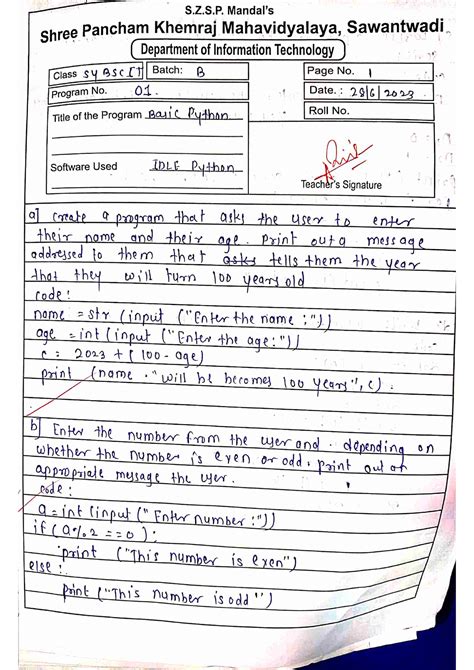 S.Z.S.P. Mandal's
Shree Pancham Khemraj Mahavidyalaya, Sawantwadi
Department of Information Technology
Class SyBSC IT Batch: B
Program No. 01.
Page No. 1
Date. : 28/6/2023
Roll No.
Title of the Program Basic Python
Software Used IDLE Python
Teacher's Signature
a] Create a program that asks the user to enter
their name and their age. Print out a message
addressed to them that asks tells them the year
that they will turn 100 years old
code:
name = str (input ("Enter the name :"))
age = int (input ("Enter the age:"))
c = 2023 + (100 - age)
print (name , "will be becomes 100 years", c) .
b] Enter the number from the user and . depending on
whether the number is even or odd, print out of
appropriate message the user.
code:
a = int (input (" Enter number :"))
if (a%2 ==0):
print ("This number is even")
else :
print ("This number is odd ")